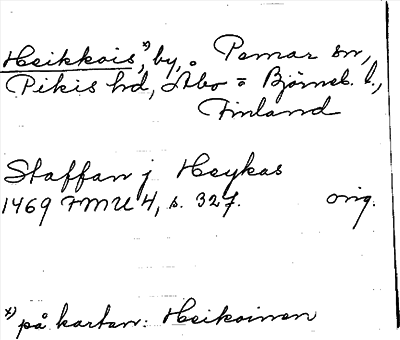 Heikkois,*) by, Pemar sn,
Pikis hd, Åbo = Björneb. l.,
Finland
Staffan j Heykas
1469 FMU 4, s. 327. orig.
*) på kartan: Heikoinen